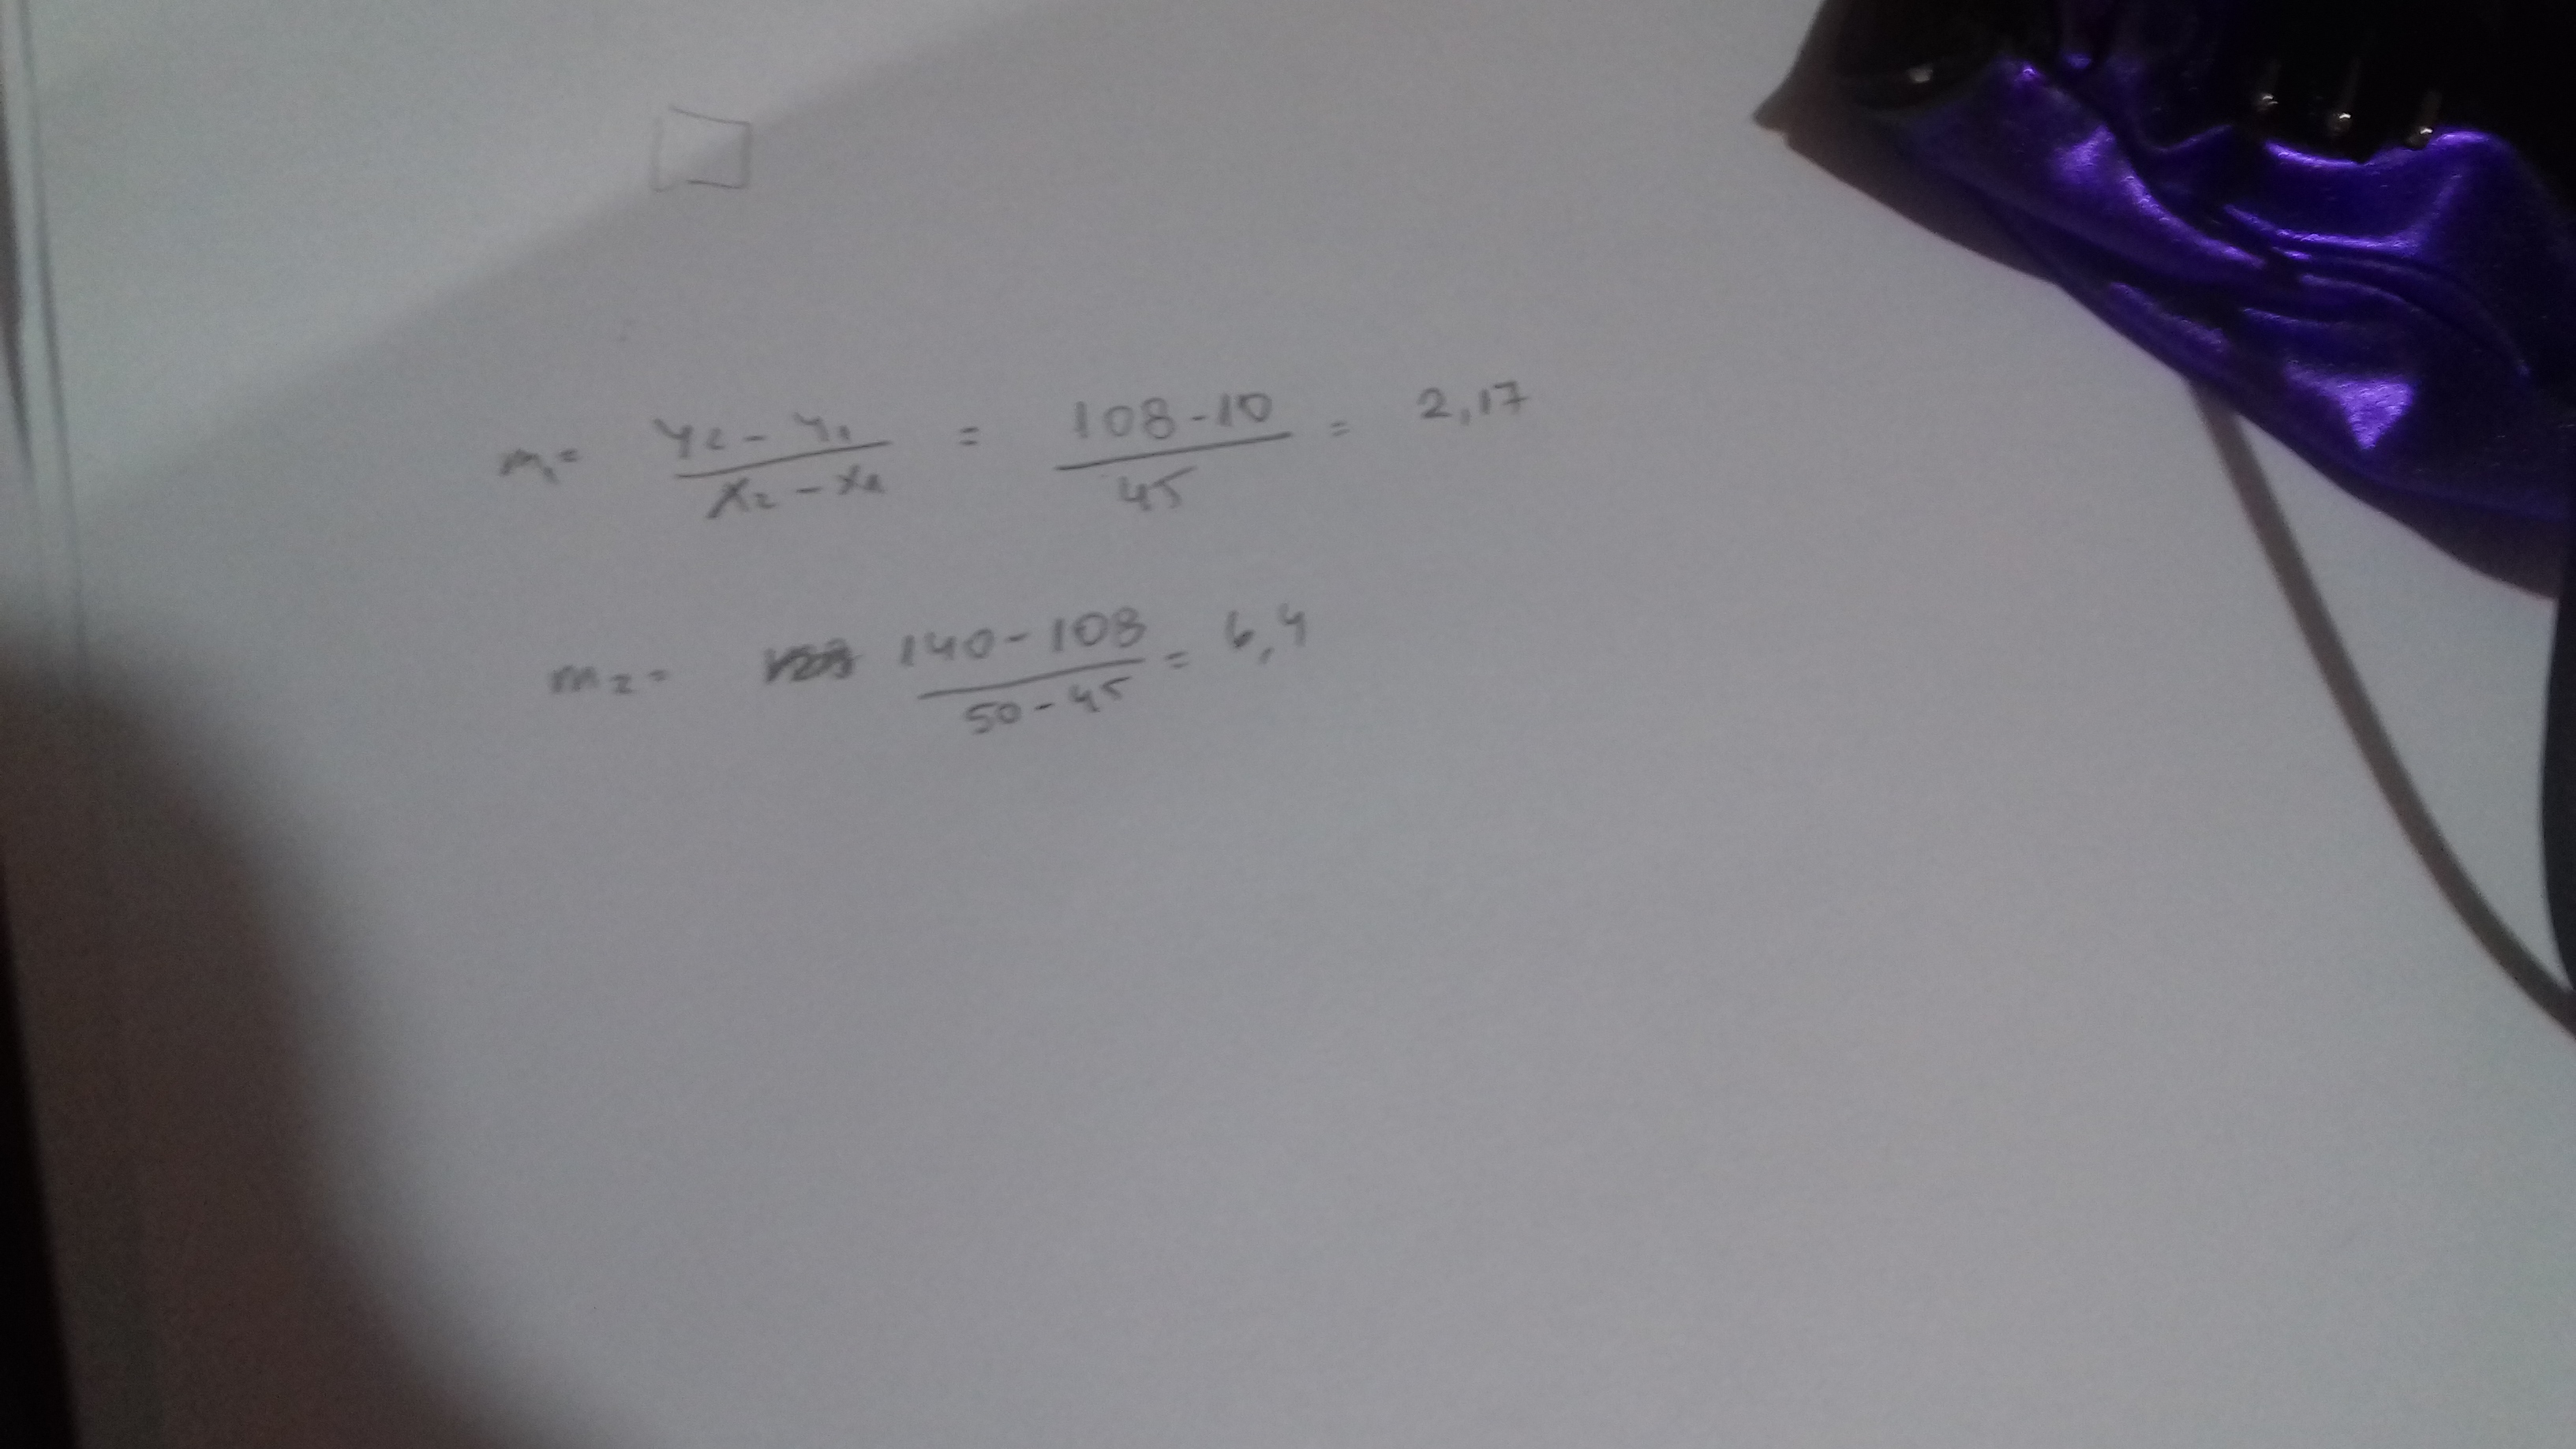 m₁ = y₂ - y₁ / x₂ - x₁ = 108 - 10 / 45 = 2,17
m₂ = 140 - 108 / 50 - 45 = 6,4